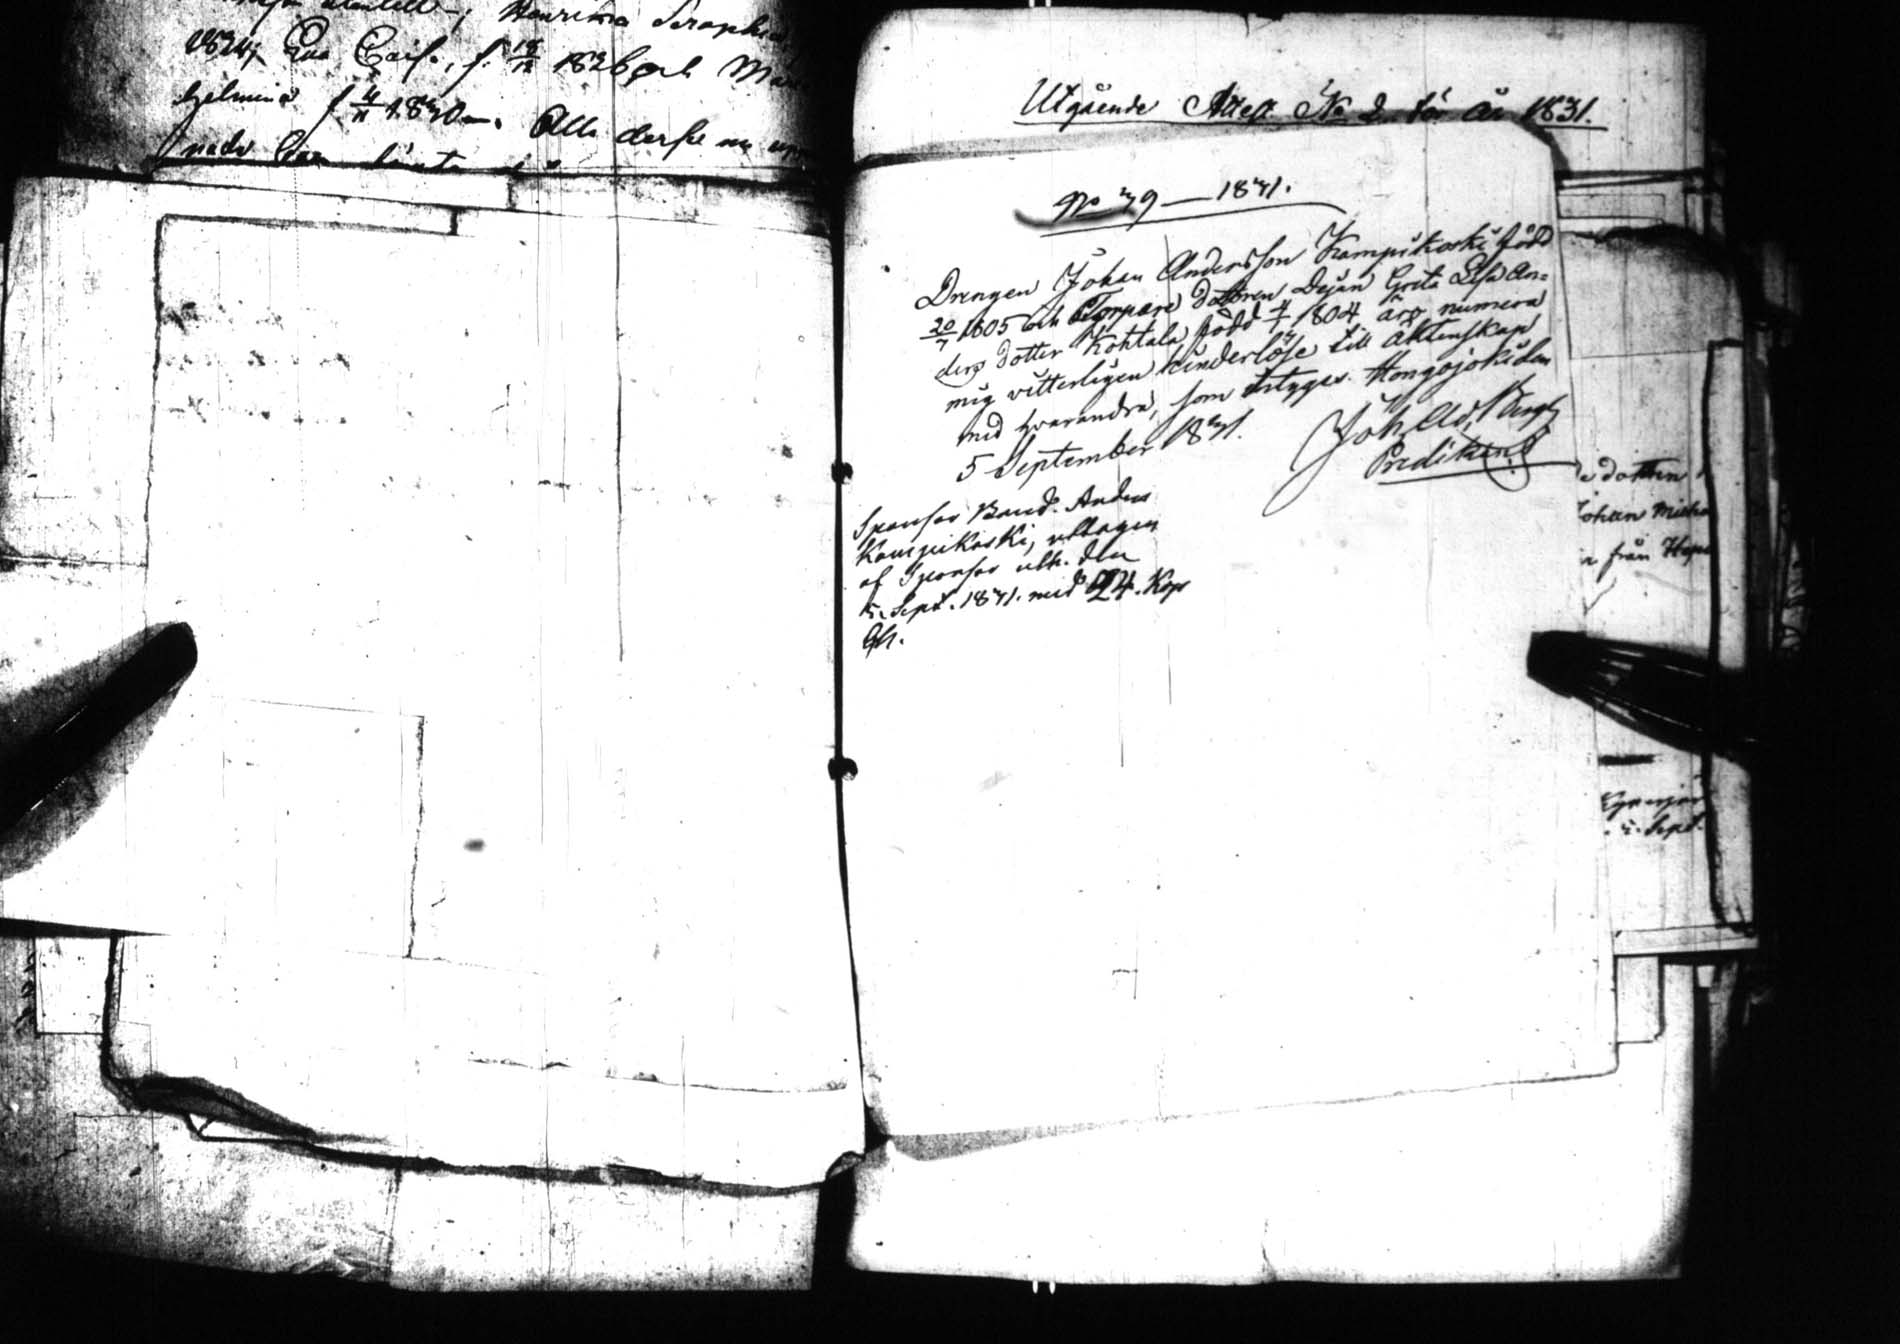 Henrica Seraphia
1824; Eva Caisa, f. 18/12 1826 och
helmina f 4/11 1830. Alla desse nu upp
Utgående Attest No 2 för år 1831.
No 39 — 1831.
Drengen Johan Andersson Kampikoski född
20/7 1805 och Torpare dottren Dejan Greta Lisa An=
ders dotter Kohtala född 4/7 1804 äro numera
mig vitterligen hinderlöse till äktenskap
med hvarandra, som intygas. Hongojoki den
5 September 1831.
Joh. Ad. Bergh
Predikant
Sponsor Bond. Anders
Kampikoski, uttagen
af Sponsor ulk. den
5. Sept. 1831. med 24. Kop
dottren
Johan Micha
från
. 5. Sept.